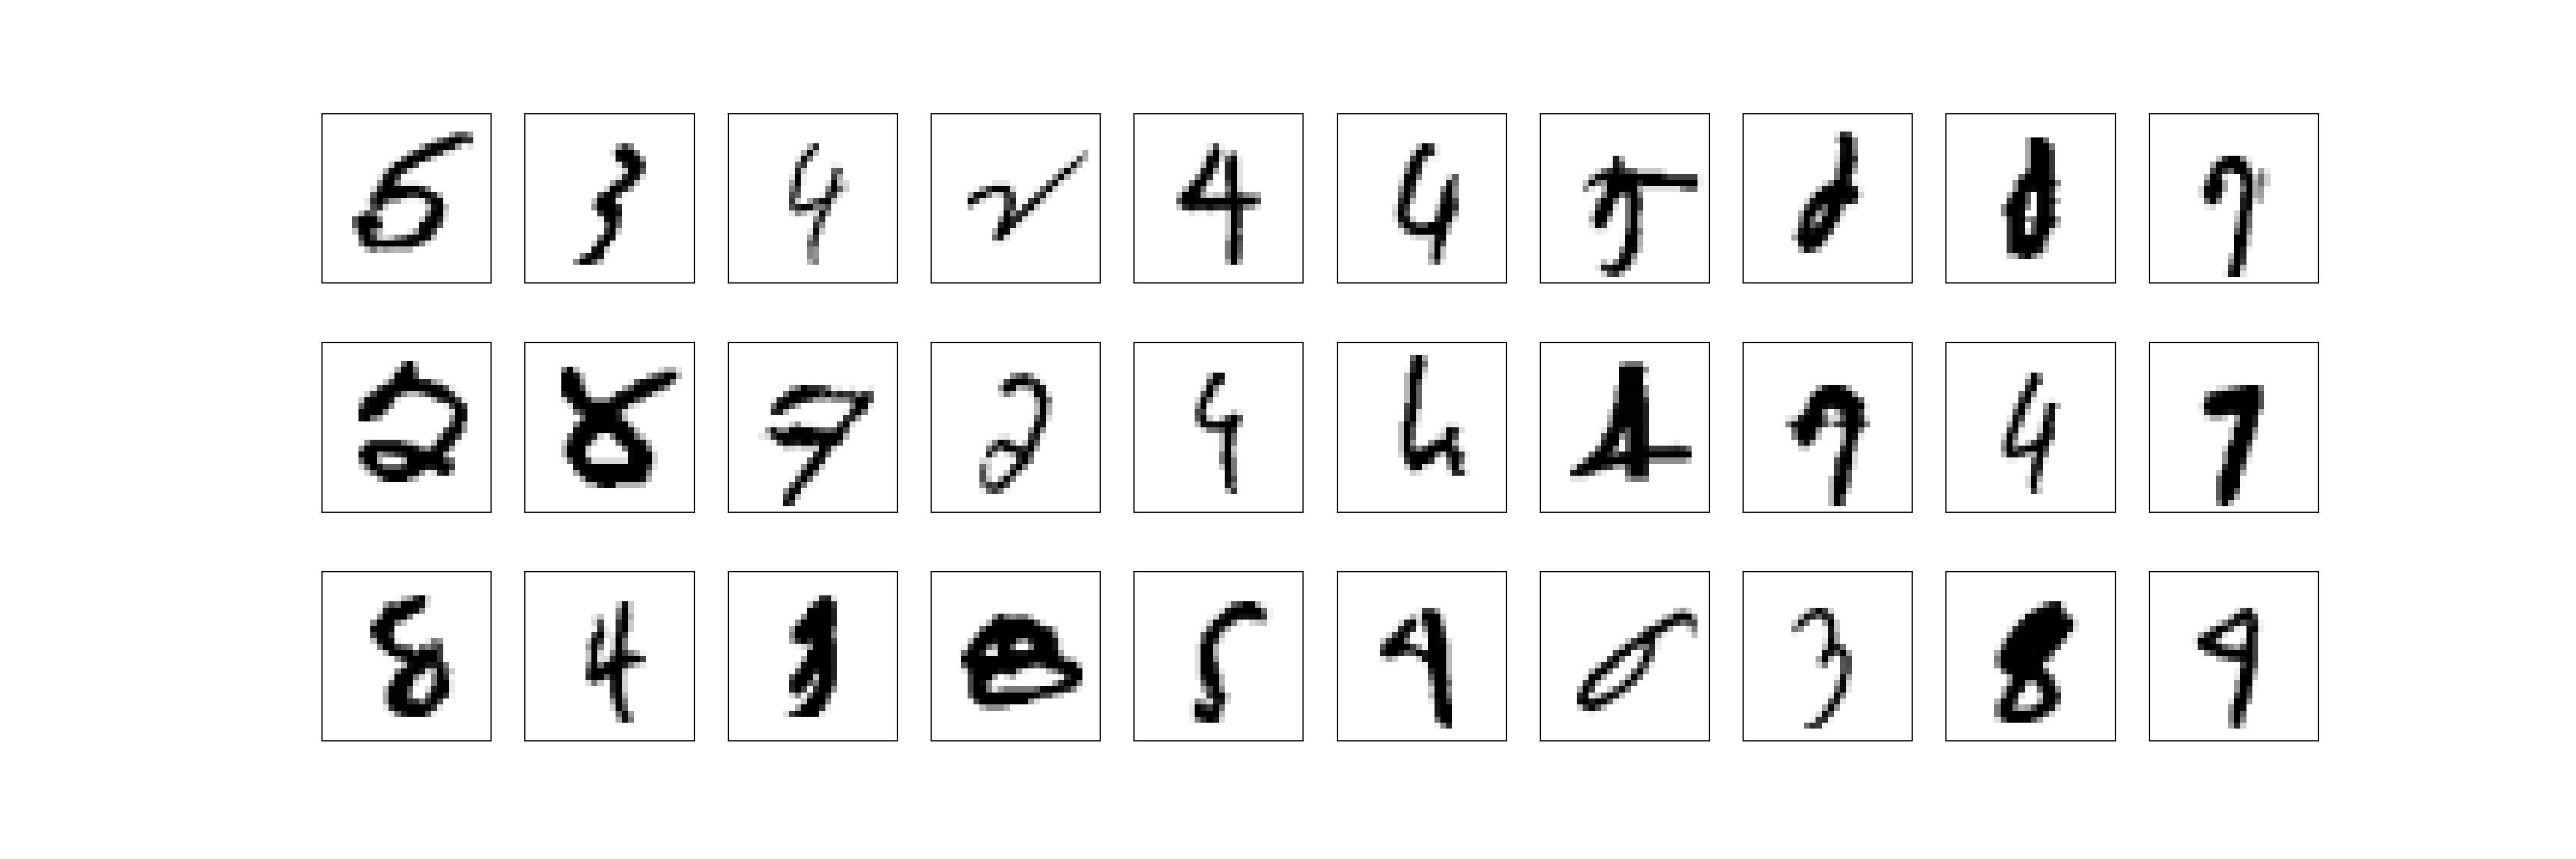 5 3 4 2 4 4 5 8 9
2 8 7 2 4 4 9 4 7
8 4 3 5 9 0 3 8 9